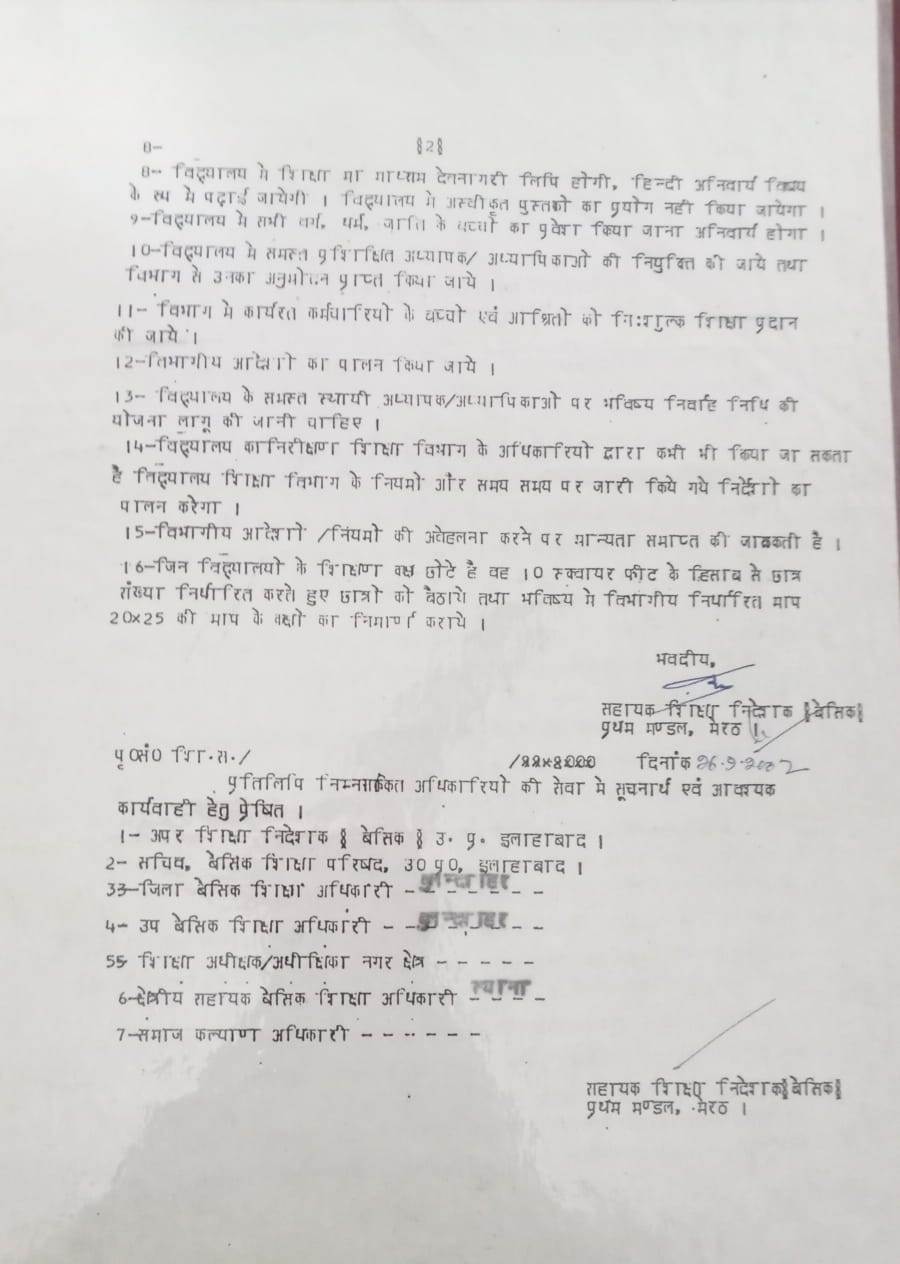 8-
§2§
8-- विद्यालय मे शिक्षा मा माध्यम देवनागरी लिपि होगी, हिन्दी अनिवार्य विषय
के रूप मे पढाई जायेगी । विद्यालय मे अस्वीकृत पुस्तको का प्रयोग नही किया जायेगा ।
9-विद्यालय मे सभी वर्ग, धर्म, जाति के बच्चो का प्रवेश किया जाना अनिवार्य होगा ।
10-विद्यालय मे समस्त प्रशिक्षित अध्यापक/ अध्यापिकाओ की नियुक्ति की जाये तथा
विभाग से उनका अनुमोदन प्राप्त किया जाये ।
11- विभाग मे कार्यरत कर्मचारियो के बच्चो एवं आश्रितो को नि:शुल्क शिक्षा प्रदान
की जाये ।
12-विभागीय आदेशो का पालन किया जाये ।
13- विद्यालय के समस्त स्थायी अध्यापक/अध्यापिकाओ पर भविष्य निर्वाह निधि की
योजना लागू की जानी चाहिए ।
14-विद्यालय कानिरीक्षण शिक्षा विभाग के अधिकारियो द्वारा कभी भी किया जा सकता
है विद्यालय शिक्षा विभाग के नियमो और समय समय पर जारी किये गये निर्देशो का
पालन करेगा ।
15-विभागीय आदेशो /नियमो की अवेहलना करने पर मान्यता समाप्त की जासकती है ।
16-जिन विद्यालयो के शिक्षण कक्ष छोटे है वह 10 स्क्वायर फीट के हिसाब से छात्र
संख्या निर्धारित करते हुए छात्रो को बैठाये तथा भविष्य मे विभागीय निर्धारित माप
20x25 की माप के कक्षो का निमार्ण कराये ।
भवदीय,
सहायक शिक्षा निदेशक §बेसिक§
प्रथम मण्डल, मेरठ ।
पृ0सं0 शि.स./ / दिनांक 26.9.2002
प्रतिलिपि निम्न अधिकारियो की सेवा मे सूचनार्थ एवं आवश्यक
कार्यवाही हेतु प्रेषित ।
1- अपर शिक्षा निदेशक § बेसिक § उ. प्र. इलाहाबाद ।
2- सचिव, बेसिक शिक्षा परिषद, उ0 प्र0, इलाहाबाद ।
33-जिला बेसिक शिक्षा अधिकारी - - - - - - -
4- उप बेसिक शिक्षा अधिकारी - - - - - - - -
55- शिक्षा अधीक्षक/अधीक्षिका नगर क्षेत्र - - - - -
6-क्षेत्रीय सहायक बेसिक शिक्षा अधिकारी स्याना
7-समाज कल्याण अधिकारी - - - - - - -
सहायक शिक्षा निदेशक§बेसिक§
प्रथम मण्डल, मेरठ ।